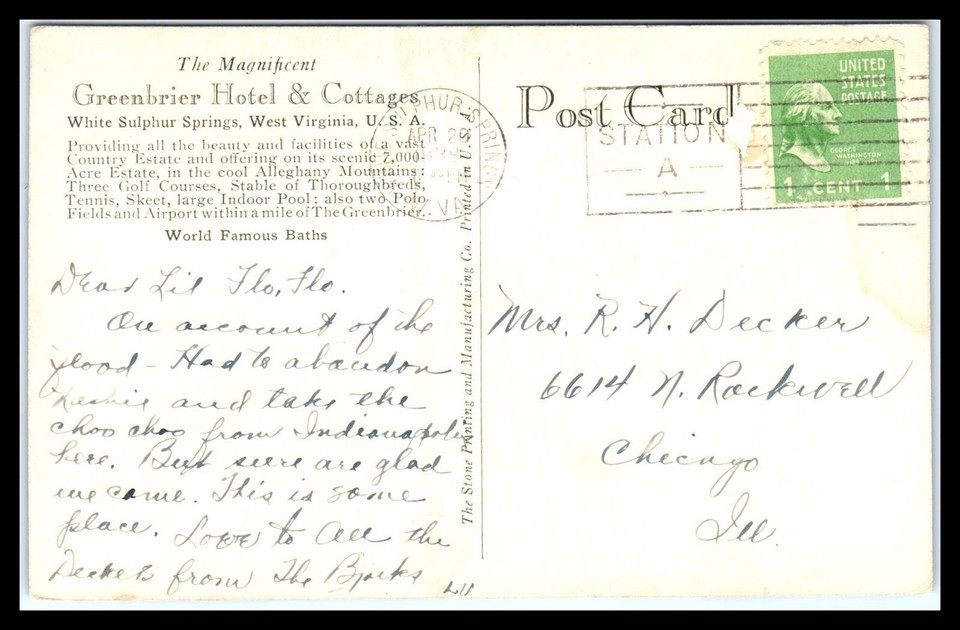 The Magnificent
Greenbrier Hotel & Cottages
White Sulphur Springs, West Virginia, U. S. A.
Providing all the beauty and facilities of a vast
Country Estate and offering on its scenic 7,000-
Acre Estate, in the cool Alleghany Mountains:
Three Golf Courses, Stable of Thoroughbreds,
Tennis, Skeet, large Indoor Pool; also two Polo
Fields and Airport within a mile of The Greenbrier.
World Famous Baths
Dear Lil Flo, Flo.
On account of the
flood - Had to abandon
and take the
choo choo from Indianapolis
here. But sure are glad
we came. This is some
place. Love to All the
Deckers from The Bjorks
The Stone Printing and Manufacturing Co. Printed in U.S.A.
Post Card
SULPHUR SPRINGS
APR 2
W. VA
STATION
A
UNITED
STATES
POSTAGE
GEORGE
WASHINGTON
1 CENT 1
Mrs. R. H. Decker
6614 N. Rockwell
Chicago
Ill.